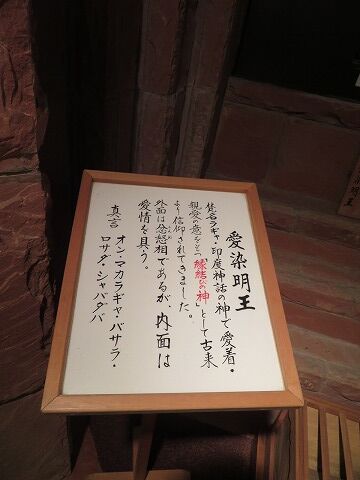 愛染明王
梵名ラギャ・印度神話の神で愛着・
親愛の意をもつ「縁結びの神」として古来
より信仰されてきました。
外面は忿怒相であるが、内面は
愛情を具う。
真言
オン・マカラギャ・バサラ・
ロサダ・シャバダバ